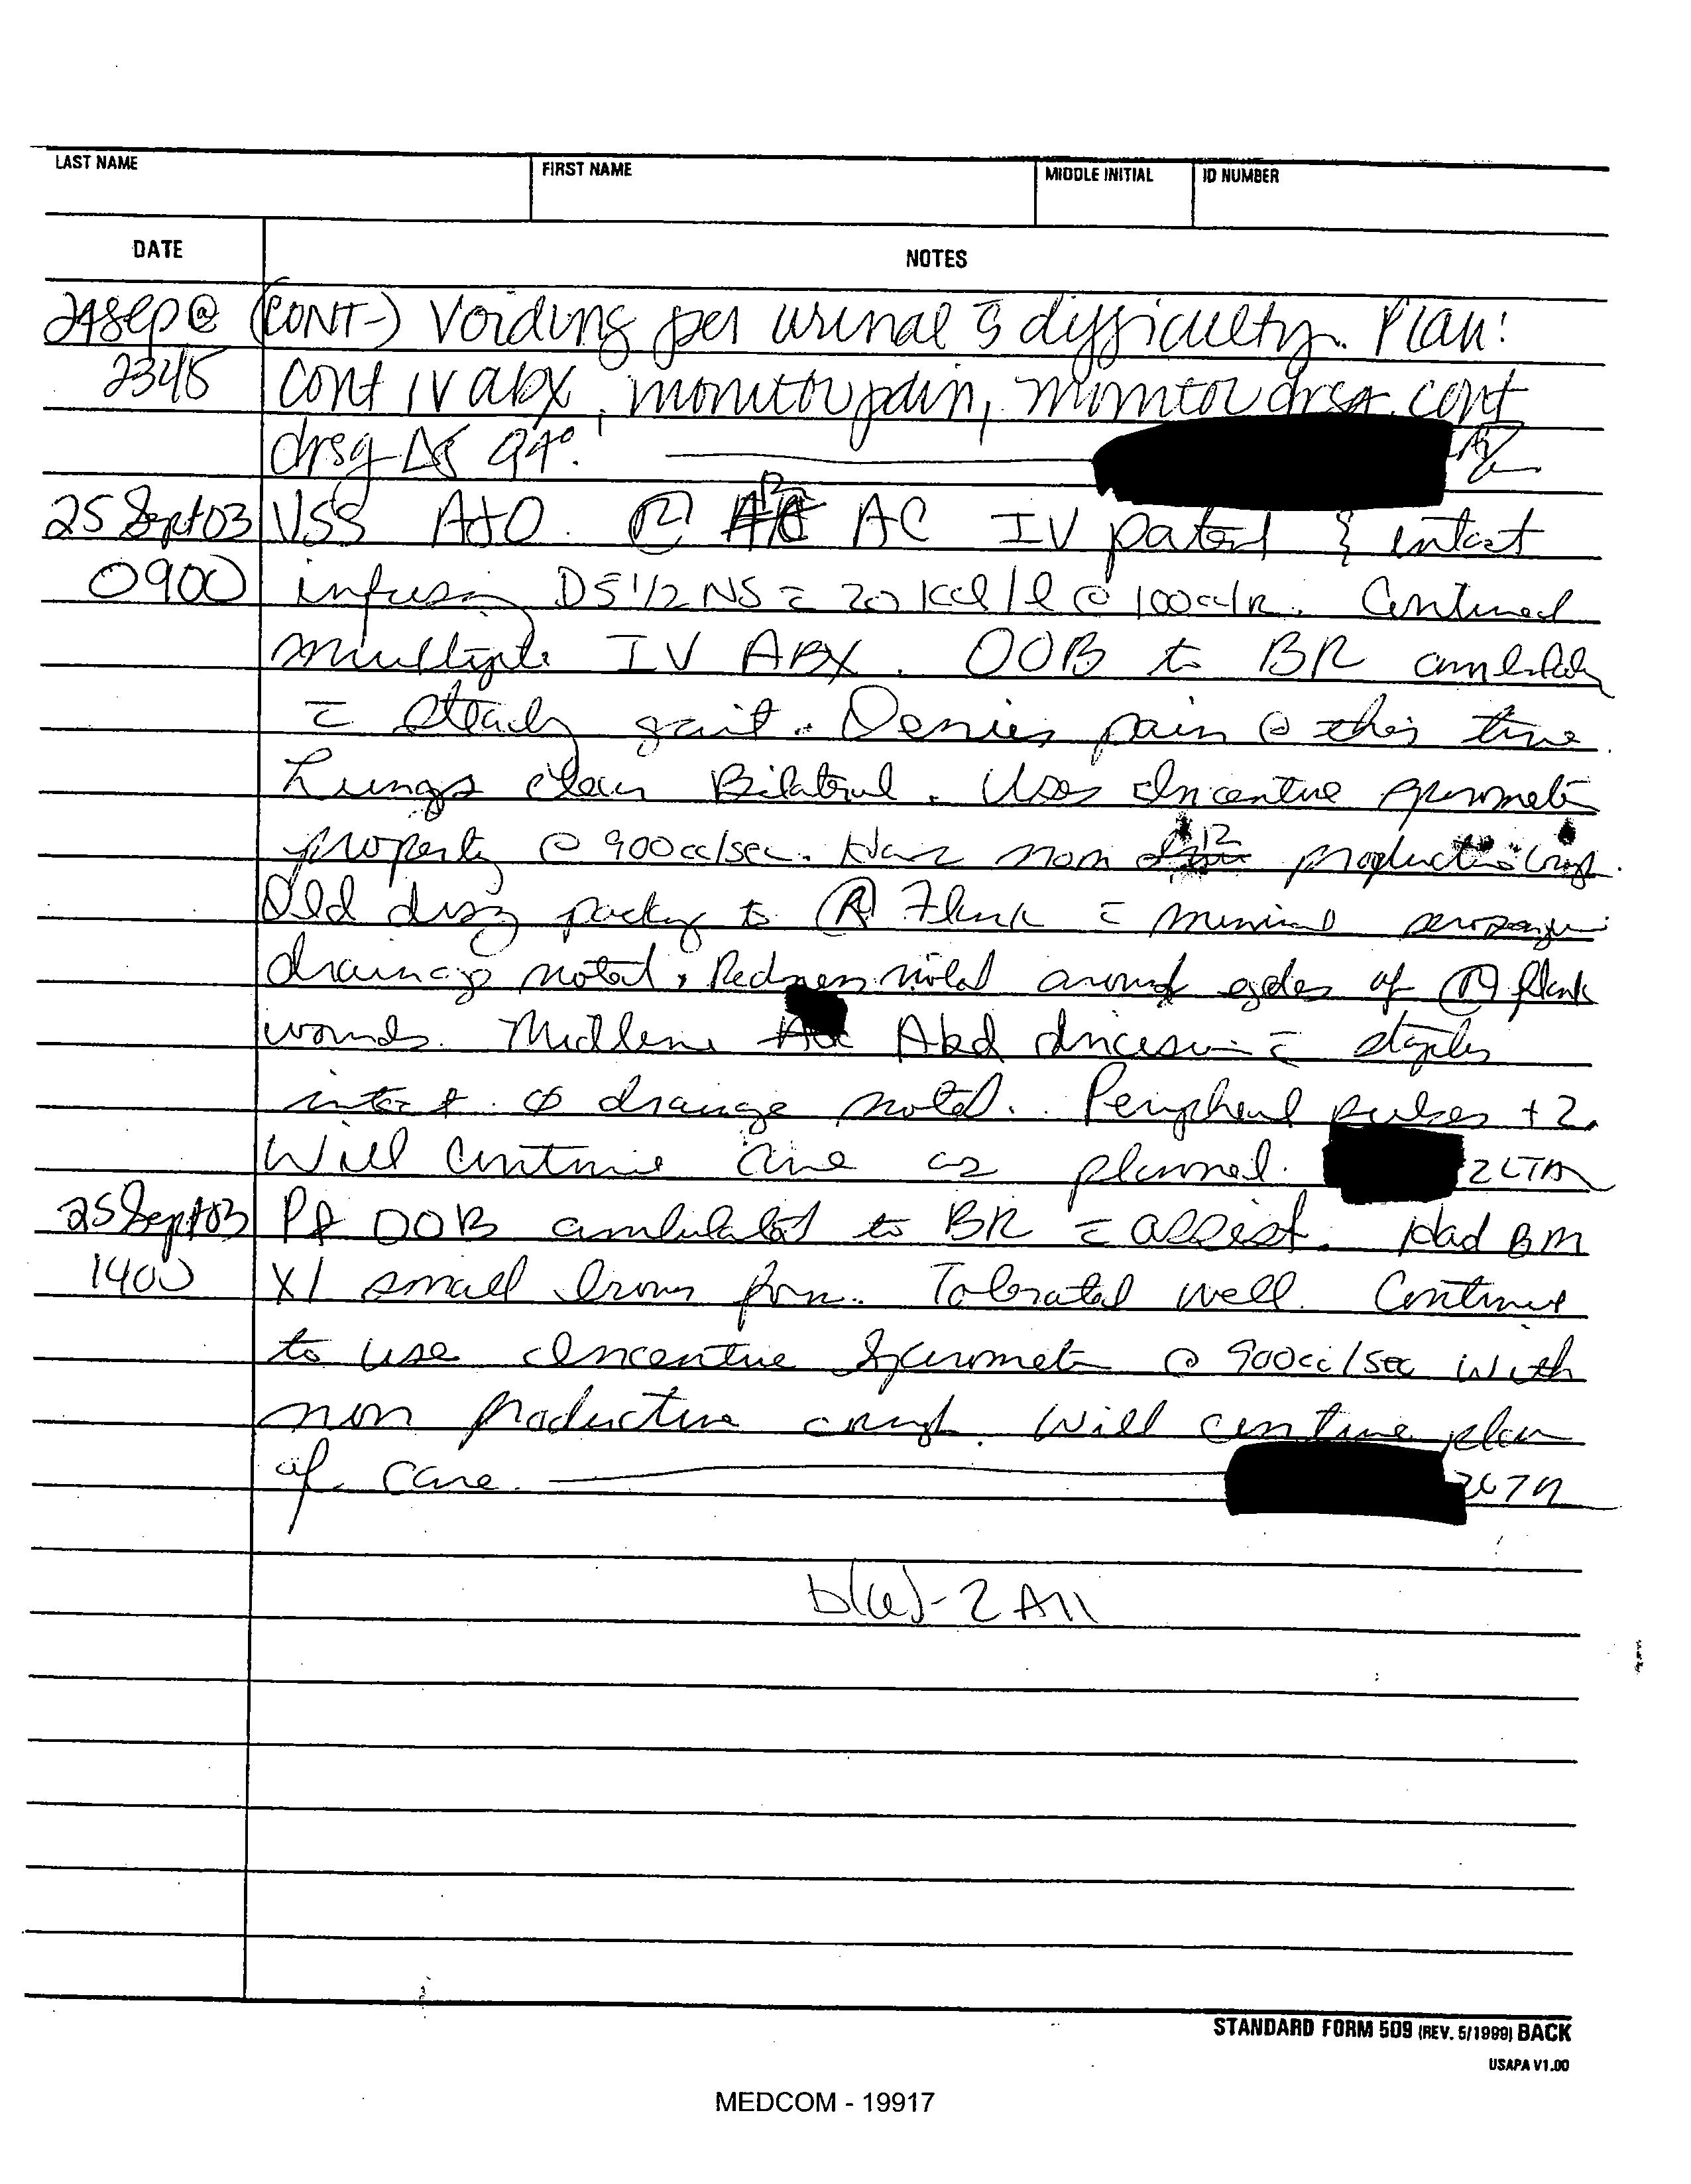 LAST NAME
FIRST NAME
MIDDLE INITIAL
ID NUMBER
DATE
NOTES
24Sep@ (CONT-) Voiding per urinal s̄ difficulty. Plan:
2345 cont IV abx, monitor pain, monitor drsg. cont
drsg Δs q4°.
25 Sept 03 VSS A+O. (R) AC IV patent & intact
0900 infusing D5 1/2 NS c̄ 20 kcl/l @ 100cc/hr. Continued
multiple IV ABX. OOB to BR
c̄ steady gait. Denies pain @ this time.
Lungs clear Bilateral. Uses Incentive spirometer
properly @ 900cc/sec. Has non productive cough.
Old drsg packing to (R) Flank c̄ minimal
drainage noted, Redness noted around edges of (R) flank
wounds. Midline Abd Incision c̄ staples
intact. Ø drainage noted. Peripheral pulses +2.
Will continue care as planned. 2LTAN
25 Sept 03 Pt OOB ambulated to BR c̄ assist. Had BM
1400 X1 small brown form. Tolerated well. Continues
to use Incentive Spirometer @ 900cc/sec with
non productive cough. Will continue plan
of care.
b(6)-2 All
STANDARD FORM 509 (REV. 5/1999) BACK
USAPA V1.00
MEDCOM - 19917